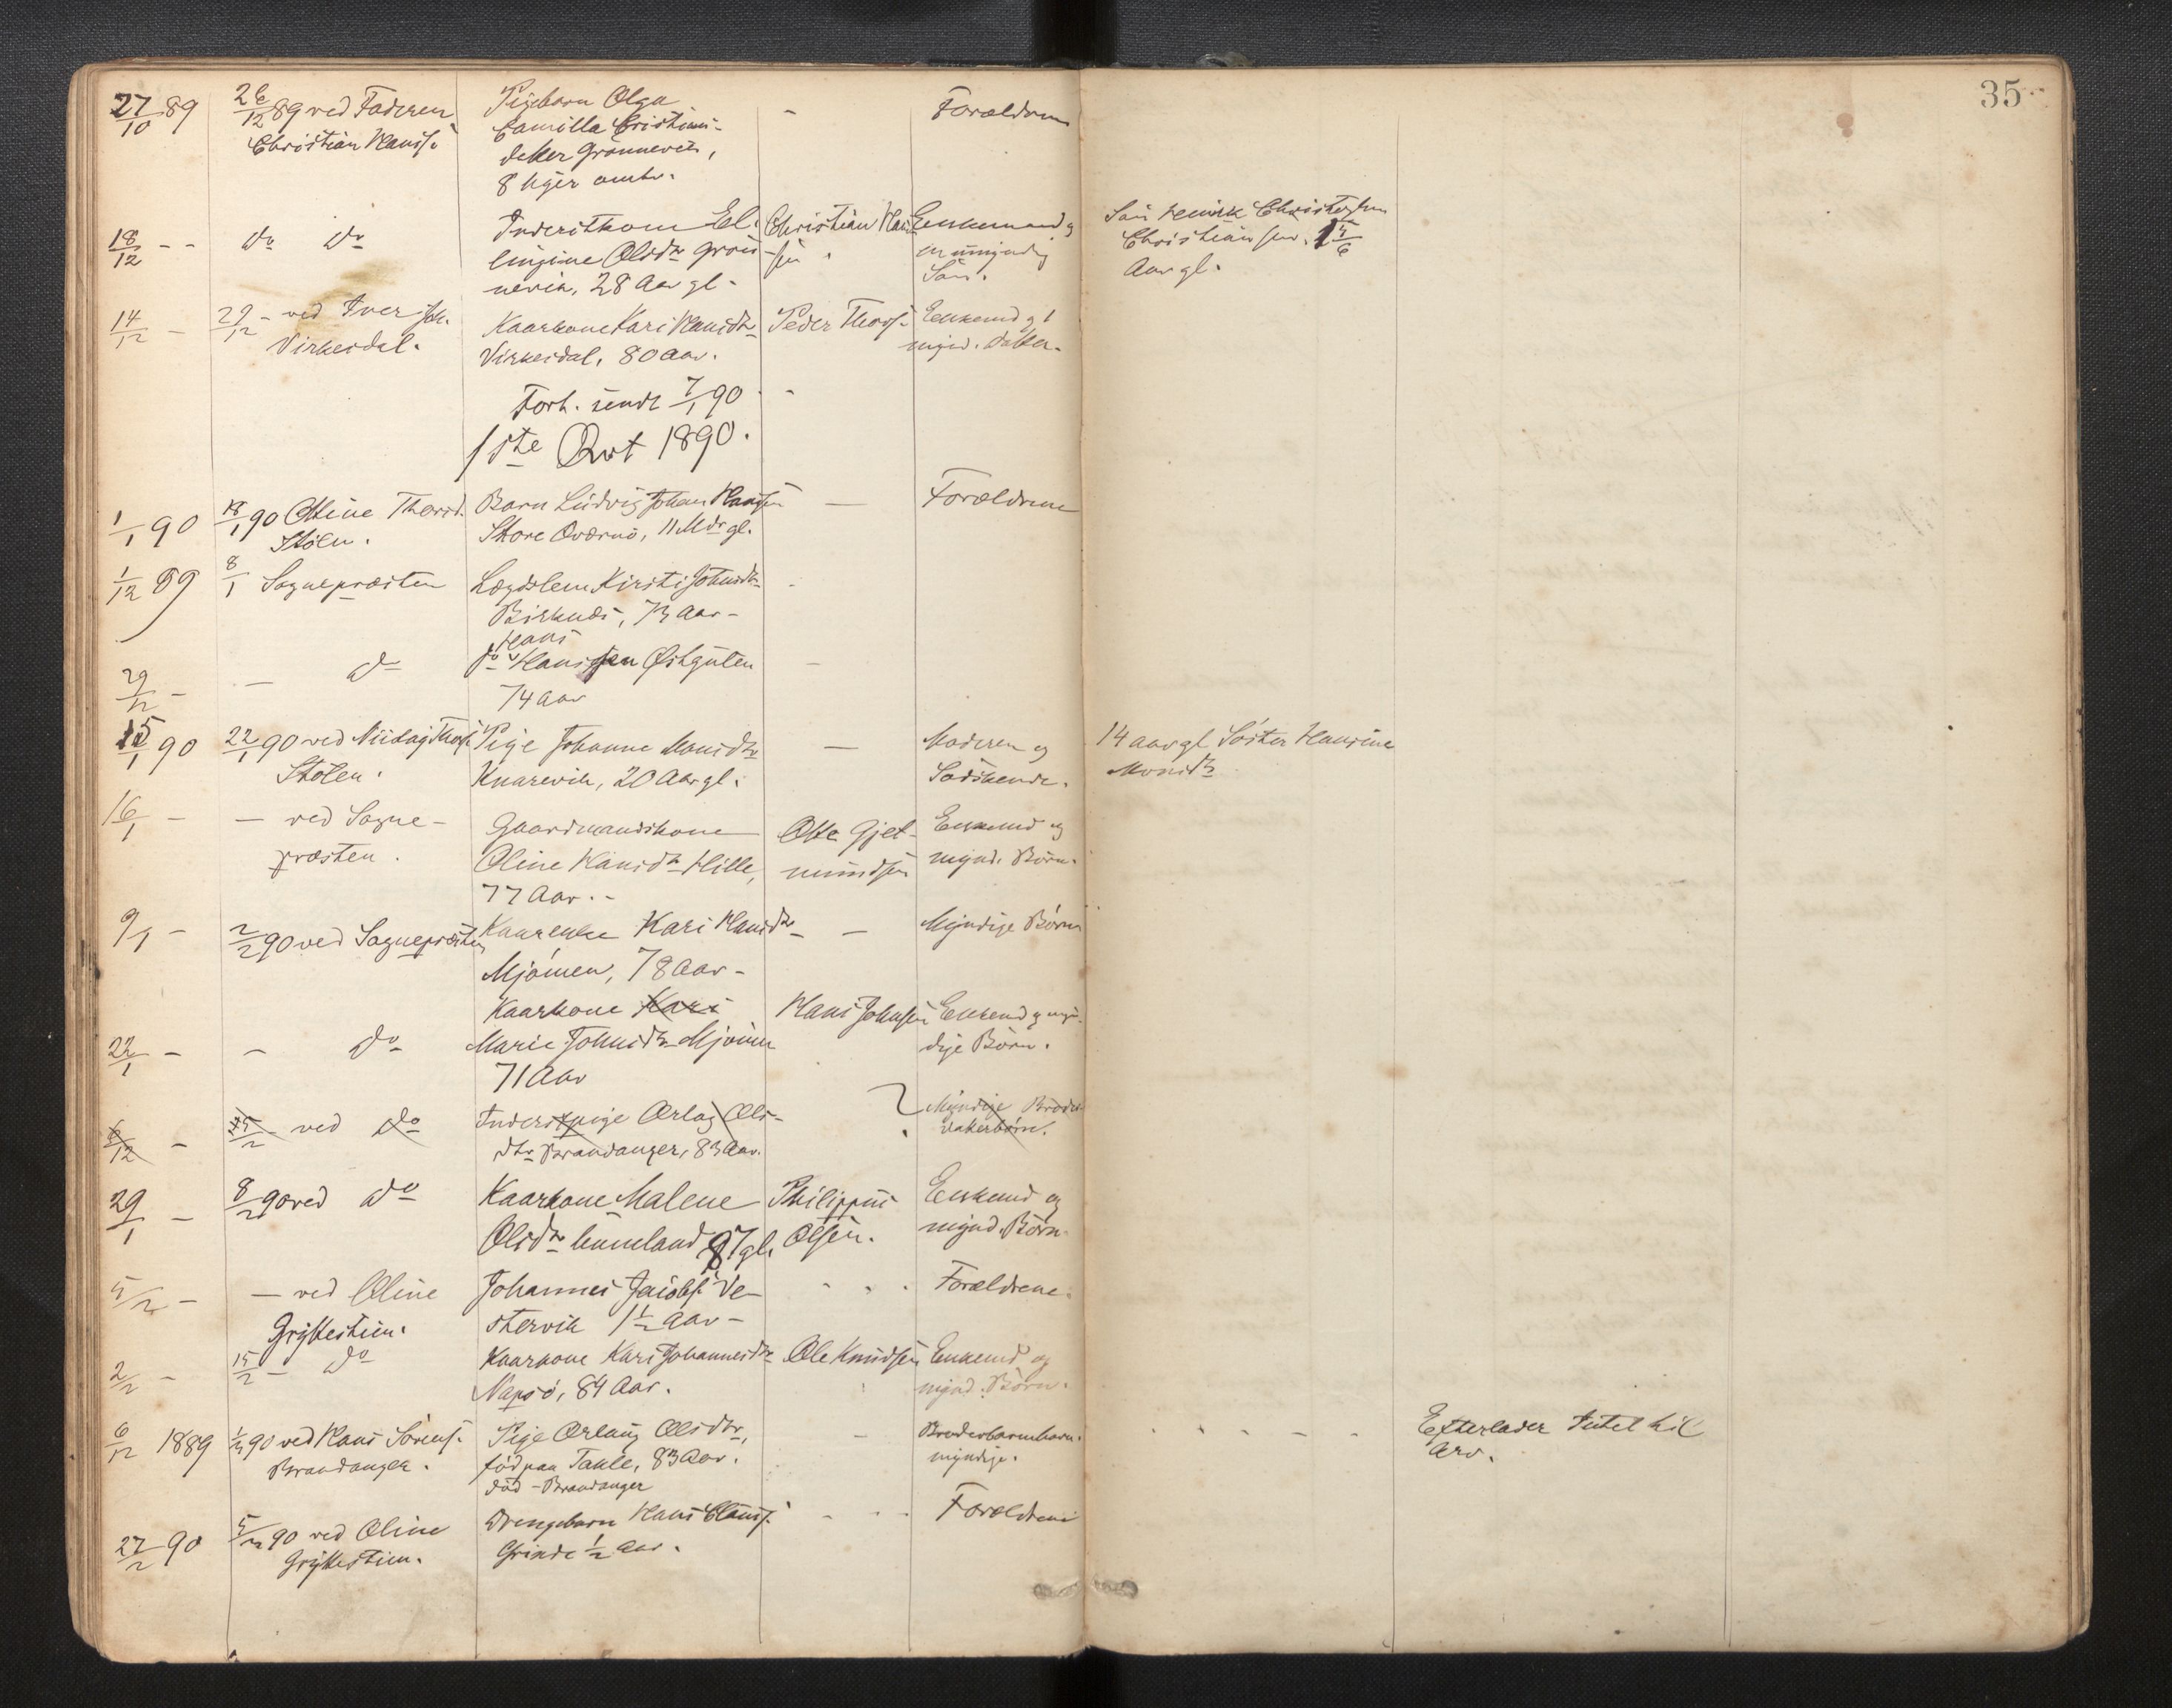 35
27/10 89
26/12 89 ved Faderen
Christian Hanss.
Pigebarn Olga
Camilla Cristians-
datter Grønnevik,
8 Uger
-
Forældrene
18/12 - -
do do
Inderstkone El-
lingine Olsdtr Grøn-
nevik, 28 Aar gl.
Christian Han-
sen
Enkemand og
en umyndig
Søn.
Søn Henrik Christofer
Christiansen, 1 5/6
Aar gl.
14/12 -
29/12 - ved Iver Joh.
Virkesdal.
Kaarkone Kari Hansdtr
Virkesdal, 80 Aar.
Peder Thoss.
Enkemd og 1
mynd. Datter.
Forh. sendt 7/1 90
1ste Qvt 1890.
1/1 90
18/1 90 Oline Thorsd.
Stølen.
Barn Ludvig Johan Hansen
Store Qværnø, 11 Mdr gl.
—
Forældrene
1/12 89
8/1 Sognepræsten
Lægdslem Kirsti Johnsdtr
Birknæs, 73 Aar -
29/12 -
— do
Hans
do Hanssen Østguten
74 Aar
15/1 90
22/1 90 ved Nicolay Thoss.
Stølen.
Pige Johanne Monsdtr
Knarevik, 20 Aar gl.
—
Moderen og
Sødskende.
14 aar gl Søster Hansine
Monsdtr
16/1 -
— ved Sogne-
præsten.
Gaardmandskone
Oline Hansdtr Hille,
77 Aar. -
Otte Gjet-
mundsen
Enkemd og
mynd. Børn.
9/1 -
2/2 90 ved Sognepræsten
Kaarenke Kari Hansdtr
Mjømen, 78 Aar -
—
Myndige Børn
22/1 -
- do
Kaarkone Kari
Marie Johnsdtr Mjømen
71 Aar
Hans Johnsen
Enkemd og myn-
dige Børn.
6/12 -
25/2 - ved do
Inderstpige Ørlaug Ols-
dtr Brandanger, 83 Aar.
?
Myndige Broder-
datterbørn.
29/1 -
8/2 90 ved do
Kaarkone Malene
Olsdtr Huneland 87 gl.
Philippus
Olsen.
Enkemd og
mynd. Børn.
5/2 -
— ved Oline
Gryttestuen.
Johannes Jacobs. Ve-
stervik 1 1/2 Aar -
Forældrene.
2/2 -
15/2 - do
Kaarkone Kari Johannesdtr
Napsø, 84 Aar.
Ole Knudsen
Enkemd og
mynd. Børn.
6/12 1889
1/3 90 ved Hans Sørens.
Brandanger.
Pige Ørlaug Olsdtr,
fød paa Takle, 83 Aar.
død - Brandanger
—
Broderbarnbarn.
myndige.
Efterlader Intet til
Arv.
27/2 90
5/3 90 ved Oline
Gryttestuen.
Drengebarn Hans Clauss.
Grinde 1/2 Aar.
Forældrene